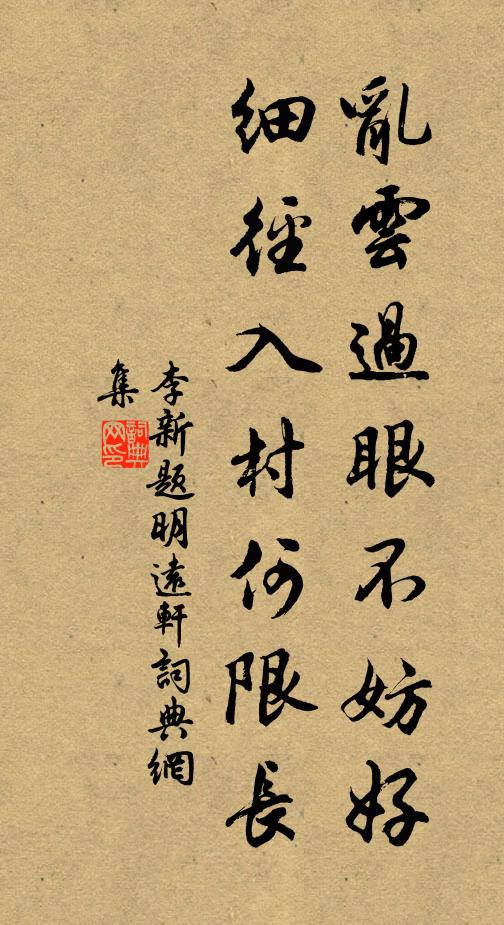 亂雲過眼不妨好
細徑入村何限長
李新题明遠軒詞典網
集
詞典
网印